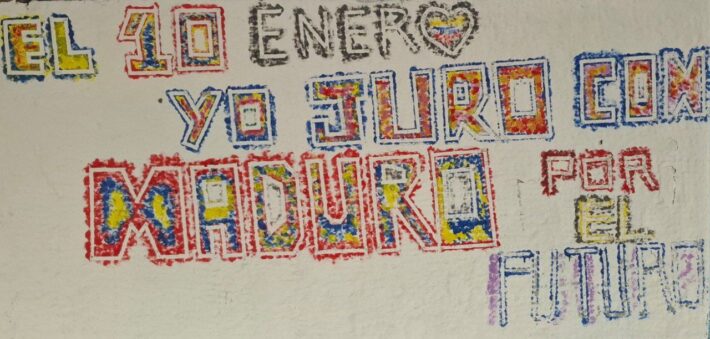 EL 10 ENERO
YO JURO CON
MADURO POR
EL
FUTURO